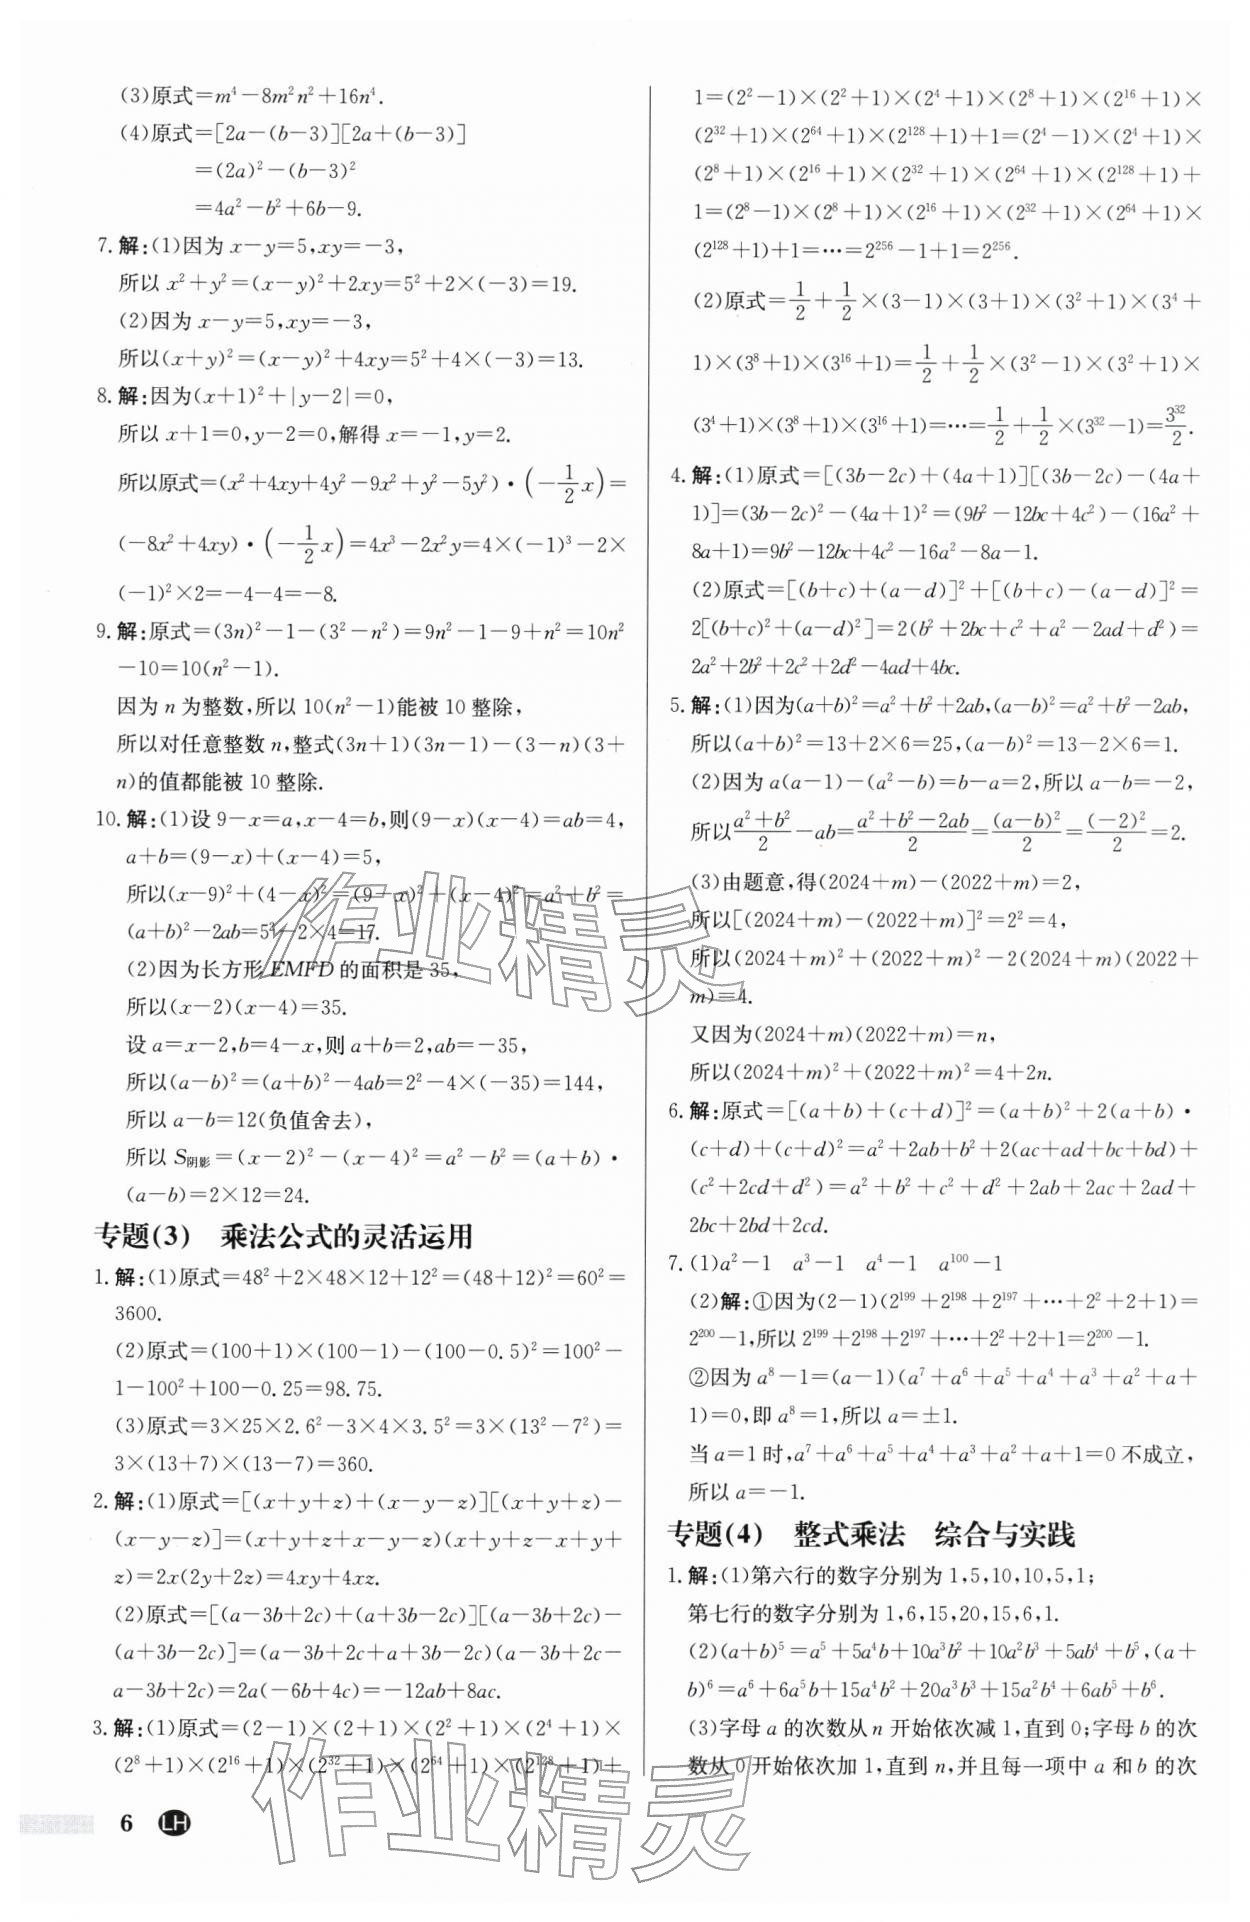 (3)原式=m⁴-8m²n²+16n⁴.
(4)原式=[2a-(b-3)][2a+(b-3)]
=(2a)²-(b-3)²
=4a²-b²+6b-9.
7. 解:(1)因为 x-y=5,xy=-3,
所以 x²+y²=(x-y)²+2xy=5²+2×(-3)=19.
(2)因为 x-y=5,xy=-3,
所以(x+y)²=(x-y)²+4xy=5²+4×(-3)=13.
8. 解:因为(x+1)²+|y-2|=0,
所以 x+1=0,y-2=0,解得 x=-1,y=2.
所以原式=(x²+4xy+4y²-9x²+y²-5y²)·(-1/2 x)=
(-8x²+4xy)·(-1/2 x)=4x³-2x²y=4×(-1)³-2×
(-1)²×2=-4-4=-8.
9. 解:原式=(3n)²-1-(3²-n²)=9n²-1-9+n²=10n²
-10=10(n²-1).
因为 n 为整数,所以 10(n²-1)能被 10 整除,
所以对任意整数 n,整式(3n+1)(3n-1)-(3-n)(3+
n)的值都能被 10 整除.
10. 解:(1)设 9-x=a,x-4=b,则(9-x)(x-4)=ab=4,
a+b=(9-x)+(x-4)=5,
所以(x-9)²+(4-x)²=(9-x)²+(x-4)²=a²+b²=
(a+b)²-2ab=5²-2×4=17.
(2)因为长方形 EMFD 的面积是 35,
所以(x-2)(x-4)=35.
设 a=x-2,b=4-x,则 a+b=2,ab=-35,
所以(a-b)²=(a+b)²-4ab=2²-4×(-35)=144,
所以 a-b=12(负值舍去),
所以 S阴影=(x-2)²-(x-4)²=a²-b²=(a+b)·
(a-b)=2×12=24.
专题(3) 乘法公式的灵活运用
1. 解:(1)原式=48²+2×48×12+12²=(48+12)²=60²=
3600.
(2)原式=(100+1)×(100-1)-(100-0.5)²=100²-
1-100²+100-0.25=98.75.
(3)原式=3×25×2.6²-3×4×3.5²=3×(13²-7²)=
3×(13+7)×(13-7)=360.
2. 解:(1)原式=[(x+y+z)+(x-y-z)][(x+y+z)-
(x-y-z)]=(x+y+z+x-y-z)(x+y+z-x+y+
z)=2x(2y+2z)=4xy+4xz.
(2)原式=[(a-3b+2c)+(a+3b-2c)][(a-3b+2c)-
(a+3b-2c)]=(a-3b+2c+a+3b-2c)(a-3b+2c-
a-3b+2c)=2a(-6b+4c)=-12ab+8ac.
3. 解:(1)原式=(2-1)×(2+1)×(2²+1)×(2⁴+1)×
(2⁸+1)×(2¹⁶+1)×(2³²+1)×(2⁶⁴+1)×(2¹²⁸+1)+
1=(2²-1)×(2²+1)×(2⁴+1)×(2⁸+1)×(2¹⁶+1)×
(2³²+1)×(2⁶⁴+1)×(2¹²⁸+1)+1=(2⁴-1)×(2⁴+1)×
(2⁸+1)×(2¹⁶+1)×(2³²+1)×(2⁶⁴+1)×(2¹²⁸+1)+
1=(2⁸-1)×(2⁸+1)×(2¹⁶+1)×(2³²+1)×(2⁶⁴+1)×
(2¹²⁸+1)+1=…=2²⁵⁶-1+1=2²⁵⁶.
(2)原式=1/2+1/2×(3-1)×(3+1)×(3²+1)×(3⁴+
1)×(3⁸+1)×(3¹⁶+1)=1/2+1/2×(3²-1)×(3²+1)×
(3⁴+1)×(3⁸+1)×(3¹⁶+1)=…=1/2+1/2×(3³²-1)=3³²/2.
4. 解:(1)原式=[(3b-2c)+(4a+1)][(3b-2c)-(4a+
1)]=(3b-2c)²-(4a+1)²=(9b²-12bc+4c²)-(16a²+
8a+1)=9b²-12bc+4c²-16a²-8a-1.
(2)原式=[(b+c)+(a-d)]²+[(b+c)-(a-d)]²=
2[(b+c)²+(a-d)²]=2(b²+2bc+c²+a²-2ad+d²)=
2a²+2b²+2c²+2d²-4ad+4bc.
5. 解:(1)因为(a+b)²=a²+b²+2ab,(a-b)²=a²+b²-2ab,
所以(a+b)²=13+2×6=25,(a-b)²=13-2×6=1.
(2)因为 a(a-1)-(a²-b)=b-a=2,所以 a-b=-2,
所以(a²+b²)/2-ab=(a²+b²-2ab)/2=(a-b)²/2=(-2)²/2=2.
(3)由题意,得(2024+m)-(2022+m)=2,
所以[(2024+m)-(2022+m)]²=2²=4,
所以(2024+m)²+(2022+m)²-2(2024+m)(2022+
m)=4.
又因为(2024+m)(2022+m)=n,
所以(2024+m)²+(2022+m)²=4+2n.
6. 解:原式=[(a+b)+(c+d)]²=(a+b)²+2(a+b)·
(c+d)+(c+d)²=a²+2ab+b²+2(ac+ad+bc+bd)+
(c²+2cd+d²)=a²+b²+c²+d²+2ab+2ac+2ad+
2bc+2bd+2cd.
7. (1)a²-1 a³-1 a⁴-1 a¹⁰⁰-1
(2)解:①因为(2-1)(2¹⁹⁹+2¹⁹⁸+2¹⁹⁷+…+2²+2+1)=
2²⁰⁰-1,所以 2¹⁹⁹+2¹⁹⁸+2¹⁹⁷+…+2²+2+1=2²⁰⁰-1.
②因为 a⁸-1=(a-1)(a⁷+a⁶+a⁵+a⁴+a³+a²+a+
1)=0,即 a⁸=1,所以 a=±1.
当 a=1 时,a⁷+a⁶+a⁵+a⁴+a³+a²+a+1=0 不成立,
所以 a=-1.
专题(4) 整式乘法 综合与实践
1. 解:(1)第六行的数字分别为 1,5,10,10,5,1;
第七行的数字分别为 1,6,15,20,15,6,1.
(2)(a+b)⁵=a⁵+5a⁴b+10a³b²+10a²b³+5ab⁴+b⁵,(a+
b)⁶=a⁶+6a⁵b+15a⁴b²+20a³b³+15a²b⁴+6ab⁵+b⁶.
(3)字母 a 的次数从 n 开始依次减 1,直到 0;字母 b 的次
数从 0 开始依次加 1,直到 n,并且每一项中 a 和 b 的次
6 LH
作业精灵
作业精灵